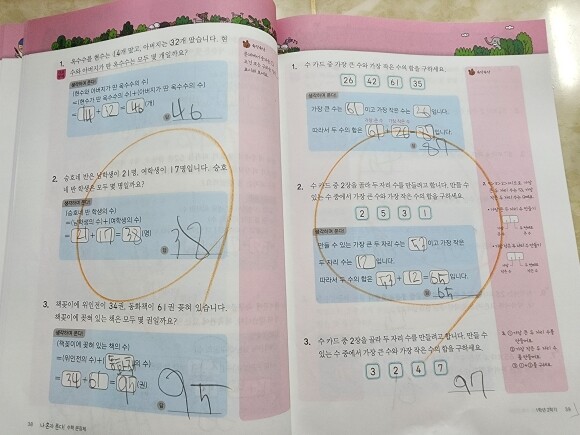 1. 옥수수를 현수는 14개 땄고, 아버지는 32개 땄습니다. 현
수와 아버지가 딴 옥수수는 모두 몇 개일까요?
생각하며 푼다!
(현수와 아버지가 딴 옥수수의 수)
=(현수가 딴 옥수수의 수)+(아버지가 딴 옥수수의 수)
= 14 + 32 = 46 (개)
답 46
2. 승호네 반은 남학생이 21명, 여학생이 17명입니다. 승호
네 반 학생은 모두 몇 명일까요?
생각하며 푼다!
(승호네 반 학생의 수)
=(남학생의 수)+(여학생의 수)
= 21 + 17 = 38 (명)
답 38
3. 책꽂이에 위인전이 34권, 동화책이 61권 꽂혀 있습니다.
책꽂이에 꽂혀 있는 책은 모두 몇 권일까요?
생각하며 푼다!
(책꽂이에 꽂혀 있는 책의 수)
=(위인전의 수)+( 동화책 의 수)
= 34 + 61 = 95 (권)
답 95
나 혼자 푼다! 수학 문장제
속닥속닥
1. 수 카드 중 가장 큰 수와 가장 작은 수의 합을 구하세요.
26 42 61 35
생각하며 푼다!
가장 큰 수는 61 이고 가장 작은 수는 26 입니다.
가장 큰 수 가장 작은 수
따라서 두 수의 합은 61 + 26 = 87 입니다.
답 87
2. 수 카드 중 2장을 골라 두 자리 수를 만들려고 합니다. 만들 수
있는 수 중에서 가장 큰 수와 가장 작은 수의 합을 구하세요.
2 5 3 1
생각하며 푼다!
만들 수 있는 가장 큰 두 자리 수는 53 이고 가장 작은
두 자리 수는 12 입니다.
따라서 두 수의 합은 53 + 12 = 65 입니다.
답 65
3. 수 카드 중 2장을 골라 두 자리 수를 만들려고 합니다. 만들 수
있는 수 중에서 가장 큰 수와 가장 작은 수의 합을 구하세요.
3 2 4 7
97
속닥속닥